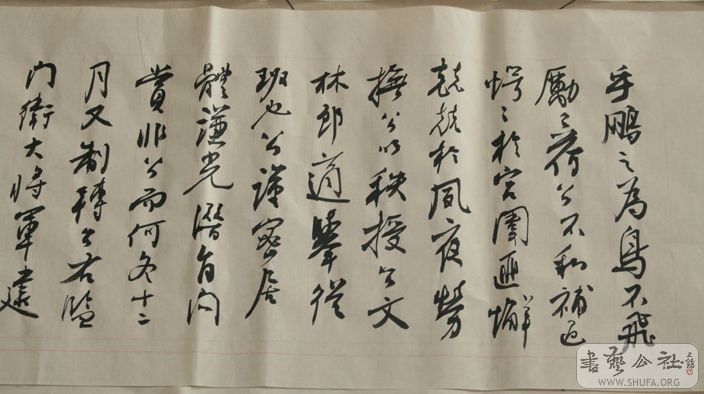 乎鵬之為鳥不飛
勵之荷公不私補過
愕之於宮闈匪懈
兢兢於夙夜勞
撫公以秩授公文
林郎適舉從
班也公謹密居
體謙光潛自內
賞非公而何冬十二
月又制轉公右監
門衛大將軍建
書藝公社
WWW.SHUFA.ORG